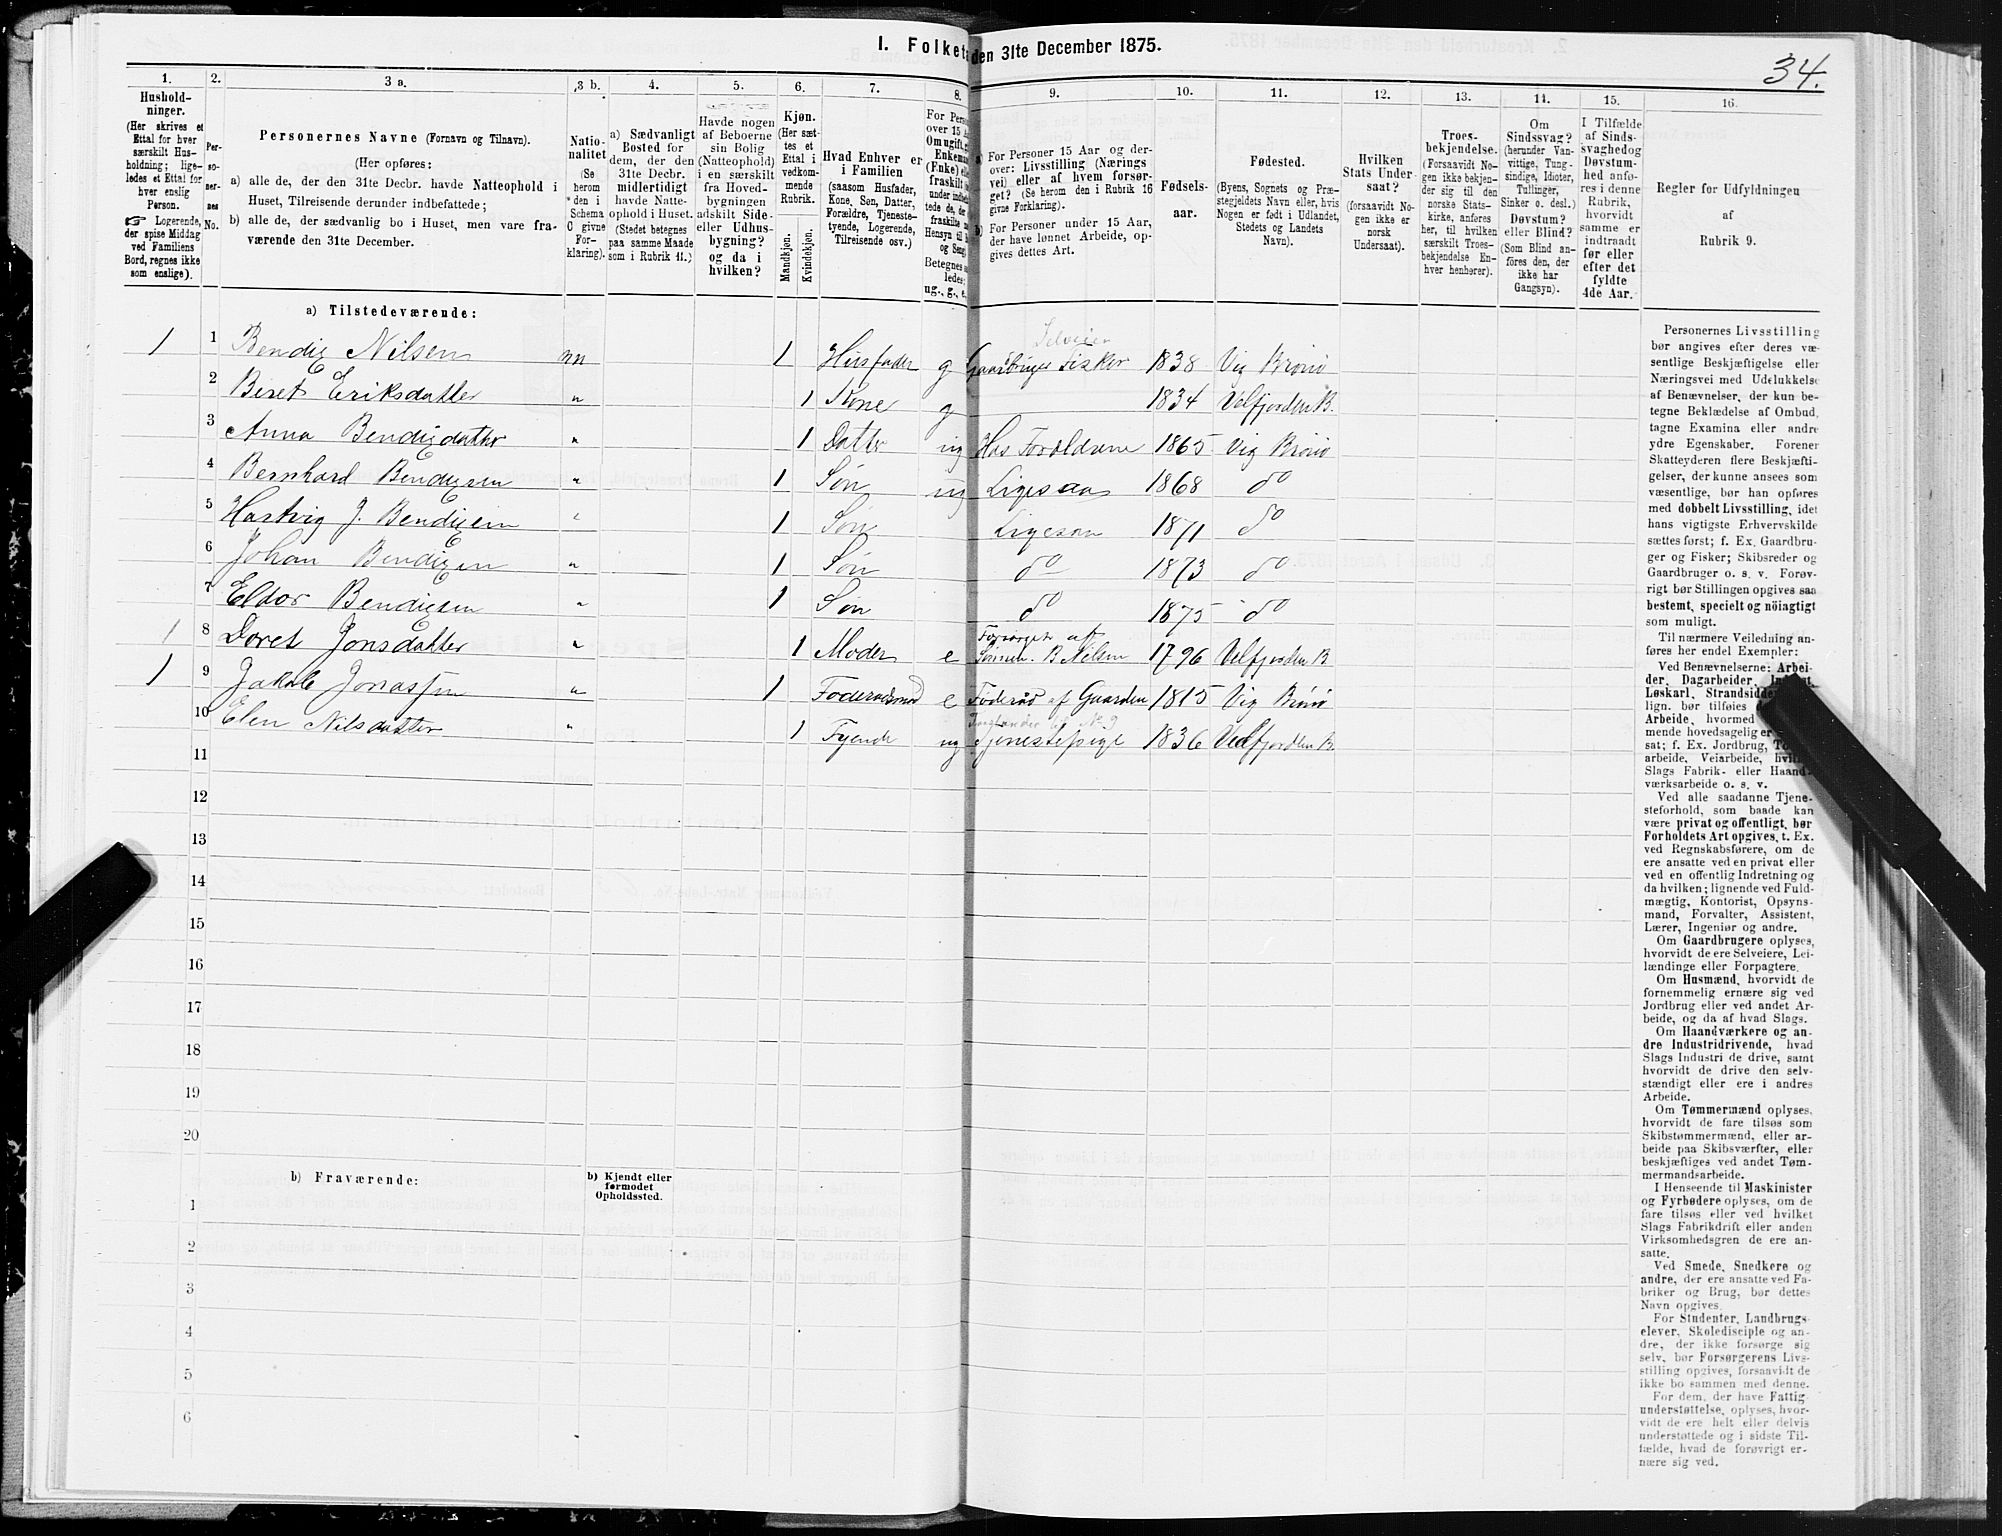 I. Folket den 31te December 1875.
34.
1. 2. 3 a. 3 b. 4. 5. 6. 7. 8. 9. 10. 11. 12. 13. 14. 15. 16.
Hushold-
ninger.
(Her skrives et
Ettal for hver
særskilt Hus-
holdning; lige-
ledes et Ettal for
hver enslig
Person.
☞ Logerende,
der spise Middag
ved Familiens
Bord, regnes ikke
som enslige).
Per-
so-
ner-
nes
No.
Personernes Navne (Fornavn og Tilnavn).
(Her opføres:
a) alle de, der den 31te Decbr. havde Natteophold i
Huset, Tilreisende derunder indbefattede;
b) alle de, der sædvanlig bo i Huset, men vare fra-
værende den 31te December.
Natio-
nalitet
(Se
herom
den i
Schema
C givne
For-
klaring).
a) Sædvanligt
Bosted for
dem, der den
31te Decbr.
midlertidigt
havde Natte-
ophold i Huset.
(Stedet betegnes
paa samme Maade
som i Rubrik 11.)
Havde nogen
af Beboerne
sin Bolig
(Natteophold)
i en særskilt
fra Hoved-
bygningen
adskilt Side-
eller Udhus-
bygning?
og da i
hvilken?
Kjøn.
(Her sæt-
tes et
Ettal i
vedkom-
mende
Rubrik.
Mandkjøn.
Kvindekjøn.
Hvad Enhver er
i Familien
(saasom Husfader,
Kone, Søn, Datter,
Forældre, Tjeneste-
tyende, Logerende,
Tilreisende osv.)
For Perso
over 15 Aa
Om ugift, g
Enkema
(Enke) el
fraskilt
under indb
tede de, de
fraskilte
Hensyn til
og Seng
Betegnes
ledes:
ug., g., e.
a) For Personer 15 Aar og der-
over: Livsstilling (Nærings-
vei) eller af hvem forsør-
get? (Se herom den i Rubrik 16
givne Forklaring).
b) For Personer under 15 Aar,
der have lønnet Arbeide, op-
gives dettes Art.
Fødsels-
aar.
Fødested.
(Byens, Sognets og Præ-
stegjeldets Navn eller, hvis
Nogen er født i Udlandet,
Stedets og Landets
Navn).
Hvilken
Stats Under-
saat?
(forsaavidt No-
gen ikke er
norsk
Undersaat).
Troes-
bekjendelse.
(Forsaavidt No-
gen ikke bekjen-
der sig til den
norske Stats-
kirke, anføres
her, til hvilken
særskilt Troes-
bekjendelse En-
hver henhører).
Om
Sindssvag?
(herunder Van-
vittige, Tung-
sindige, Idioter,
Tullinger,
Sinker o. desl.)
Døvstum?
eller Blind?
(Som Blind an-
føres den, der
ikke har
Gangsyn).
I Tilfælde
af Sinds-
svaghed og
Døvstum-
hed anfø-
res i denne
Rubrik,
hvorvidt
samme er
indtraadt
før eller
efter det
fyldte
4de Aar.
Regler for Udfyldningen
af
Rubrik 9.
a) Tilstedeværende:
Selveier
1 1 Bendig Nilsen nn 1 Husfader g Gaardbruger Fisker 1838 Vig Brønø
2 Beret Eriksdatter " 1 Kone g 1834 Velfjorden B.
3 Anna Bendigdatter " 1 Datter ug Hos Forældrene 1865 Vig Brønø
4 Bernhard Bendigsen " 1 Søn ug Ligesaa 1868 do
5 Hartvig J. Bendigsen " 1 Søn Ligesaa 1871 do
6 Johan Bendigsen " 1 Søn do 1873 do
7 Eldor Bendigsen " 1 Søn do 1875 do
1 8 Doret Jonsdatter " 1 Moder e Forsørges af
Sønnen B Nilsen 1796 Velfjorden B
1 9 Jakob Jonassen " 1 Foderaadsmand e Føderåd af Gaarden 1815 Vig Brønø
10 Elen Nilsdatter " 1 Tyende ug Tjenestepige 1836 Velfjorden B.
11
12
13
14
15
16
17
18
19
20
b) Fraværende:
b) Kjendt eller
formodet
Opholdssted.
1
2
3
4
5
6
Personernes Livsstilling
bør angives efter deres væ-
sentlige Beskjæftigelse eller
Næringsvei med Udelukkelse
af Benævnelser, der kun be-
tegne Beklædelse af Ombud,
tagne Examina eller andre
ydre Egenskaber. Forener
Skatteyderen flere Beskjæfti-
gelser, der kunne ansees som
væsentlige, bør han opføres
med dobbelt Livsstilling, idet
hans vigtigste Erhvervskilde
sættes først; f. Ex. Gaardbru-
ger og Fisker; Skibsreder og
Gaardbruger o. s. v. Forøv-
rigt bør Stillingen opgives saa
bestemt, specielt og nöiagtigt
som muligt.
Til nærmere Veiledning an-
føres her endel Exempler:
Ved Benævnelserne: Arbei-
der, Dagarbeider,
Løskarl, Strandsidder
lign. bør tilføies
Arbeide, hvormed
mende hovedsagelig er
sat; f. Ex. Jordbrug,
arbeide, Veiarbeide,
Slags Fabrik- eller Haand-
værksarbeide o. s. v.
Ved alle saadanne Tjene-
steforhold, som baade kan
være privat og offentligt, bør
Forholdets Art opgives, t. Ex.
ved Regnskabsførere, om de
ere ansatte ved en privat eller
ved en offentlig Indretning og
da hvilken; lignende ved Fuld-
mægtig, Kontorist, Opsyns-
mand, Forvalter, Assistent,
Lærer, Ingeniør og andre.
Om Gaardbrugere oplyses,
hvorvidt de ere Selveiere, Lei-
lændinge eller Forpagtere.
Om Husmænd, hvorvidt de
fornemmelig ernære sig ved
Jordbrug eller ved andet Ar-
beide, og da af hvad Slags.
Om Haandværkere og an-
dre Industridrivende, hvad
Slags Industri de drive, samt
hvorvidt de drive den selv-
stændigt eller ere i andres
Arbeide.
Om Tømmermænd oplyses,
hvorvidt de fare tilsøs som
Skibstømmermænd, eller ar-
beide paa Skibsværfter, eller
beskjæftiges ved andet Tøm-
mermandsarbeide.
I Henseende til Maskinister
og Fyrbødere oplyses, om de
fare tilsøs eller ved hvilket
Slags Fabrikdrift eller anden
Virksomhedsgren de ere an-
satte.
Ved Smede, Snedkere og
andre, der ere ansatte ved Fa-
briker og Brug, bør dettes
Navn opgives.
For Studenter, Landbrugs-
elever, Skoledisciple og an-
dre, der ikke forsørge sig
selv, bør Forsørgerens Livs-
stilling opgives, forsaavidt de
ikke bo sammen med denne.
For dem, der have Fattig-
understøttelse, oplyses, hvor-
vidt de ere helt eller delvis
understøttede og i sidste Til-
fælde, hvad de forøvrigt er-
nære sig ved.